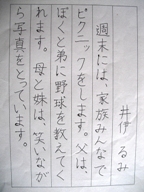 井伊 るみ
週末には、家族みんなで
ピクニックをします。父は、
ぼくと弟に野球を教えてく
れます。母と妹は、笑いなが
ら写真をとっています。